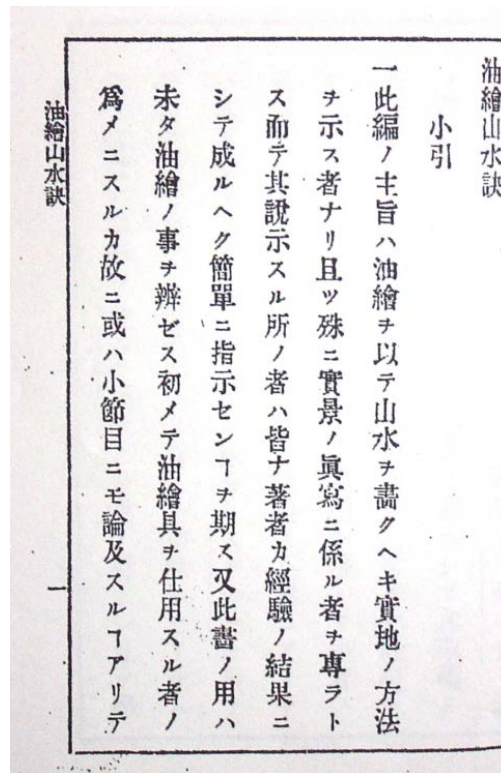 油繪山水訣
小引
一此編ノ主旨ハ油繪ヲ以テ山水ヲ畵クヘキ實地ノ方法
ヲ示ス者ナリ且ツ殊ニ實景ノ眞寫ニ係ル者ヲ專ラト
ス而テ其說示スル所ノ者ハ皆ナ著者カ經驗ノ結果ニ
シテ成ルヘク簡單ニ指示センヿヲ期ス又此書ノ用ハ
未タ油繪ノ事ヲ辨ゼス初メテ油繪具ヲ仕用スル者ノ
爲メニスルカ故ニ或ハ小節目ニモ論及スルヿアリテ
油繪山水訣
一